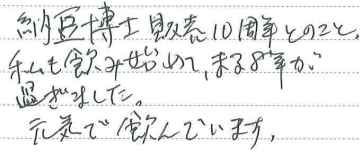 納豆博士販売10周年とのこと、
私も飲み始めて、まる8年が
過ぎました。
元気で飲んでいます。